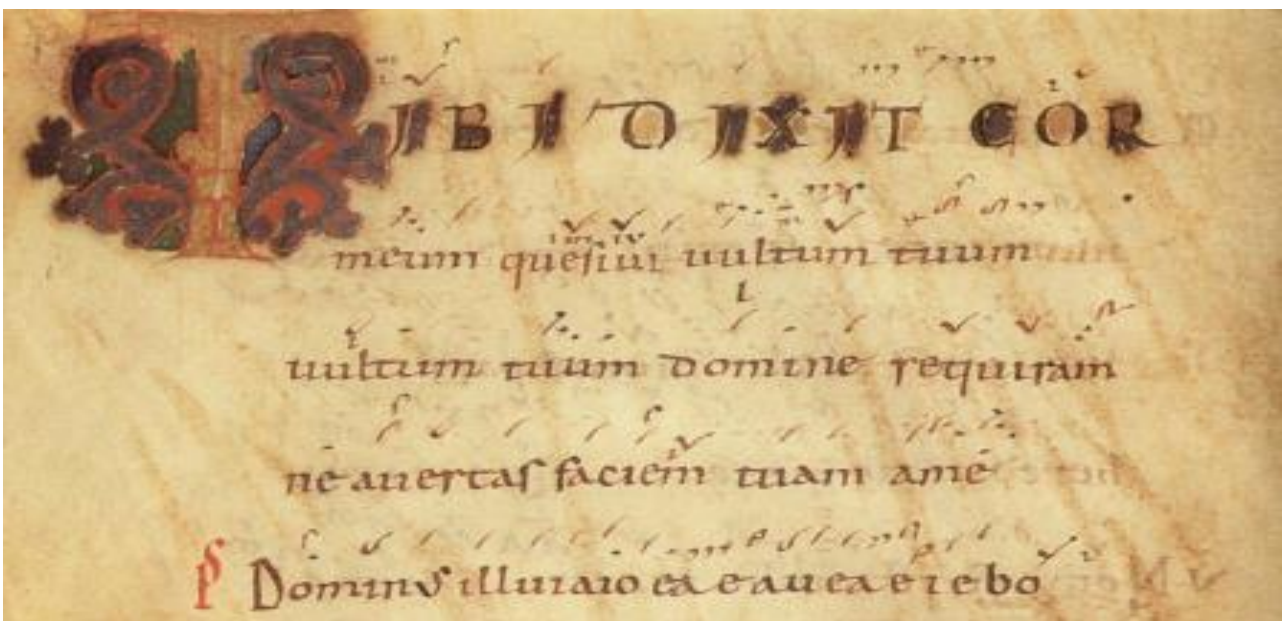 TIBI DIXIT COR
meum quesiui uultum tuum
uultum tuum domine requiram
ne auertas faciem tuam ame
Ps Dominus illuiaio ea e au ea e i e bo